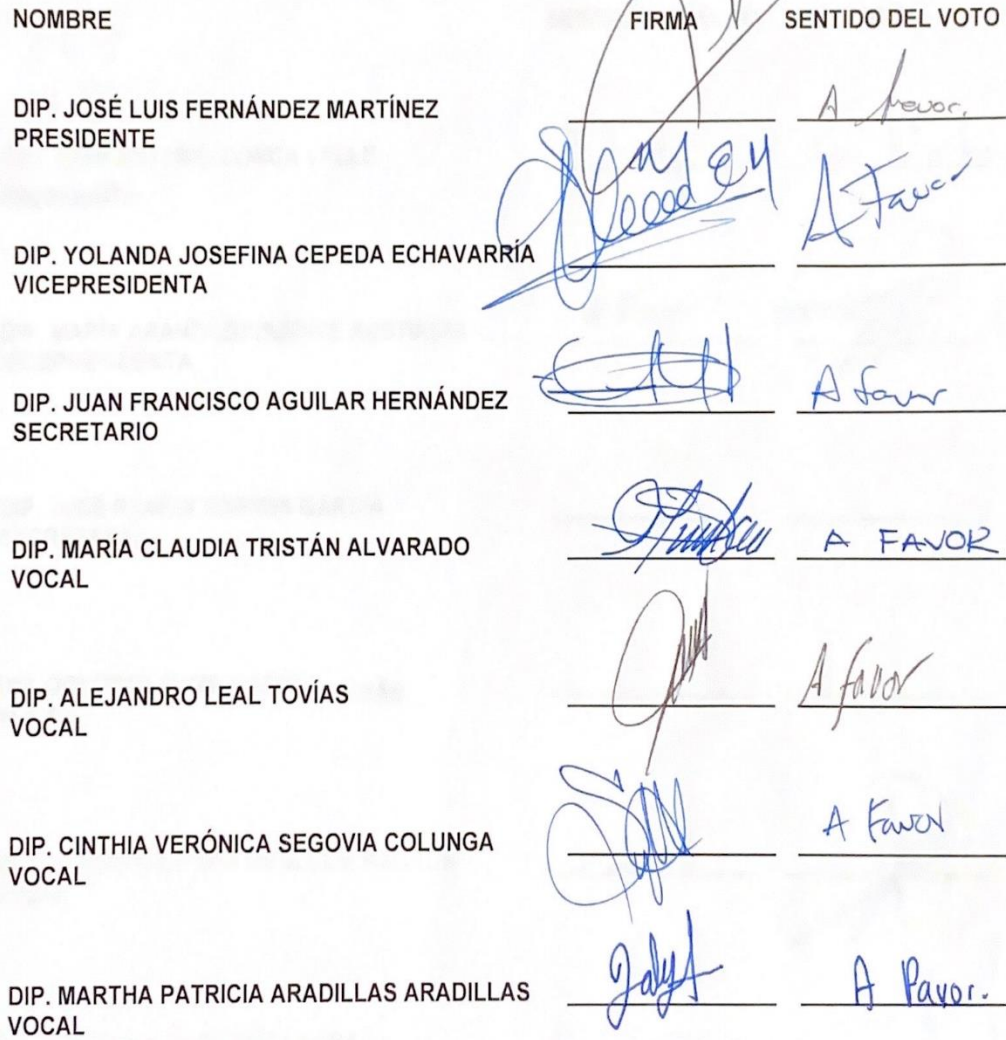 NOMBRE FIRMA SENTIDO DEL VOTO
DIP. JOSÉ LUIS FERNÁNDEZ MARTÍNEZ A favor.
PRESIDENTE
A Favor
DIP. YOLANDA JOSEFINA CEPEDA ECHAVARRÍA
VICEPRESIDENTA
DIP. JUAN FRANCISCO AGUILAR HERNÁNDEZ A favor
SECRETARIO
DIP. MARÍA CLAUDIA TRISTÁN ALVARADO A FAVOR
VOCAL
DIP. ALEJANDRO LEAL TOVÍAS A favor
VOCAL
DIP. CINTHIA VERÓNICA SEGOVIA COLUNGA A Favor
VOCAL
DIP. MARTHA PATRICIA ARADILLAS ARADILLAS A Favor.
VOCAL